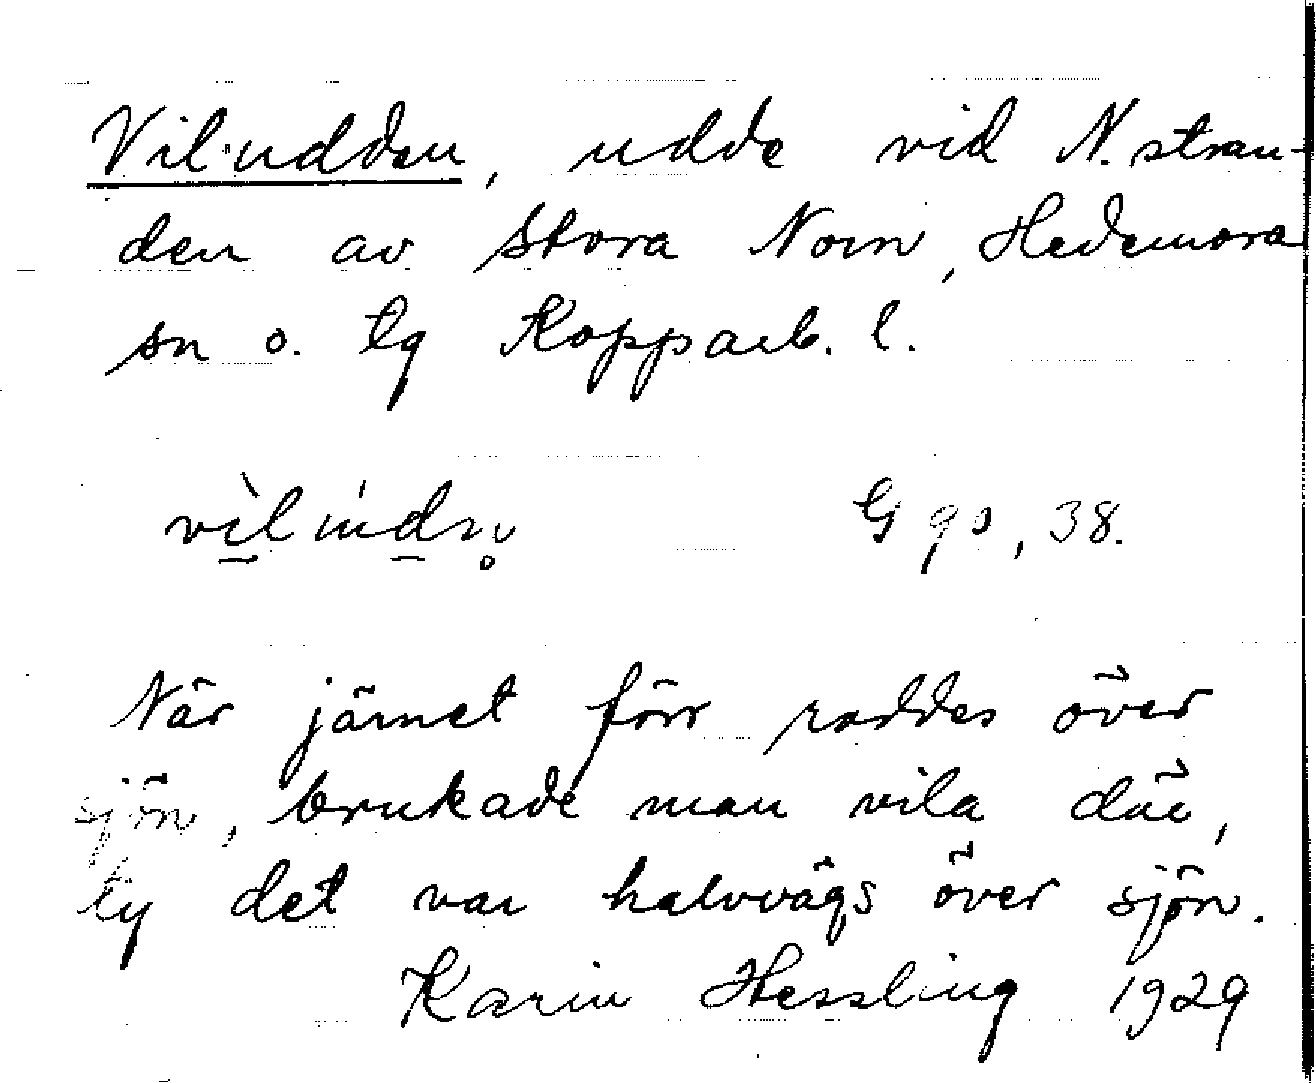 Viludden, udde vid N. stran-
den av Stora Norn, Hedemora
sn o. tg Kopparb. l.
G 90, 38.
När järnet förr roddes över
sjön, brukade man vila där,
ty det var halvvägs över sjön.
Karin Hessling 1929